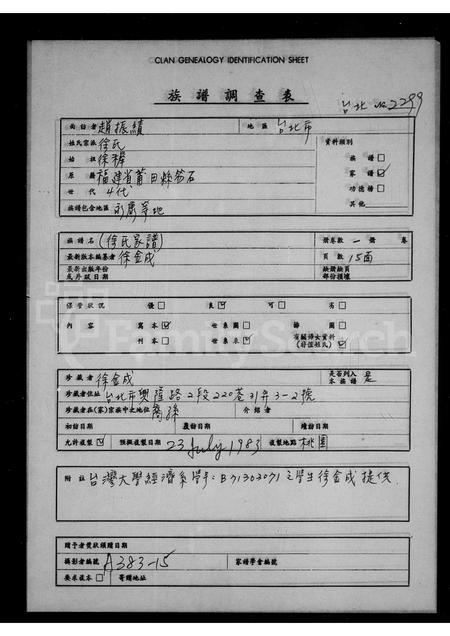 CLAN GENEALOGY IDENTIFICATION SHEET
族譜調查表
台北 No 2299
面訪者 趙振績 地區 台北市
姓氏宗派 徐氏 資料類別
始祖 徐穉 族譜□
原籍 福建省莆田 家譜☑
世代 4代 功德榜□
族譜包含地區 永康等地 其他
族譜名 (徐氏家譜) 冊卷數 一冊 卷
最新版本編纂者 徐金成 頁數 15面
最新出版年份或月份
保管狀況 優□ 良☑ 可□ 劣□
內容 寫本☑ 世系圖□ 譜圖□
刊本□ 世系表☑ 有關婦女資料(詳僅姓氏)☑
珍藏者 徐金成 是否列入本族譜 是
珍藏者住址 台北市興隆路2段220巷31弄3-2號
珍藏者在(家)宗族中之地位 裔孫 介紹者
初訪日期 複訪日期 續訪日期
允許複製☑ 預擬複製日期 23 July 1983 複製地點 桃園
附註 台灣大學經濟系學生: B71303071 之學生徐金成提供.
贈予者獎狀頒贈日期
攝影者編號 A383-15 家譜學會編號
要求複本□ 寄贈地址
FamilySearch